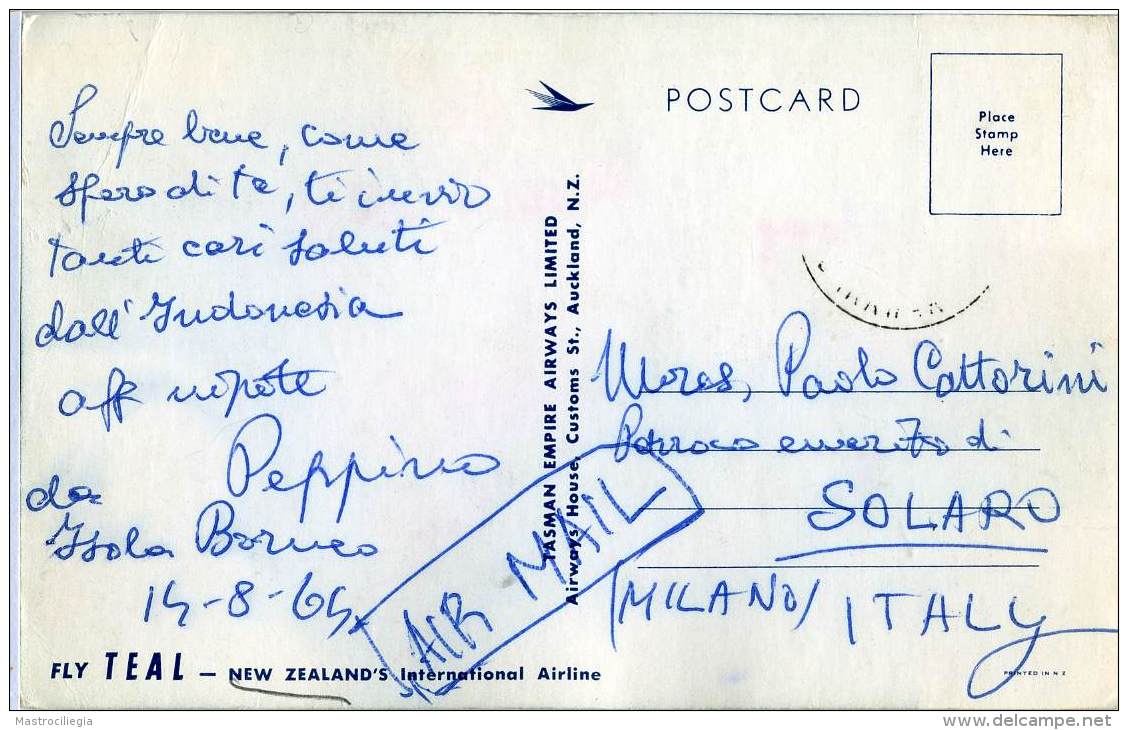 Sempre bene, come
spero di te, ti invio
tanti cari saluti
dall'Indonesia
aff nipote
Peppino
da
Isola Borneo
14-8-64
FLY TEAL — NEW ZEALAND'S International Airline
TASMAN EMPIRE AIRWAYS LIMITED
Airways House, Customs St., Auckland, N.Z.
AIR MAIL
POSTCARD
Place
Stamp
Here
Paolo Cattorini
Parroco emerito di
SOLARO
(MILANO) ITALY
PRINTED IN N Z
Mastrocilegia
delcampe.net